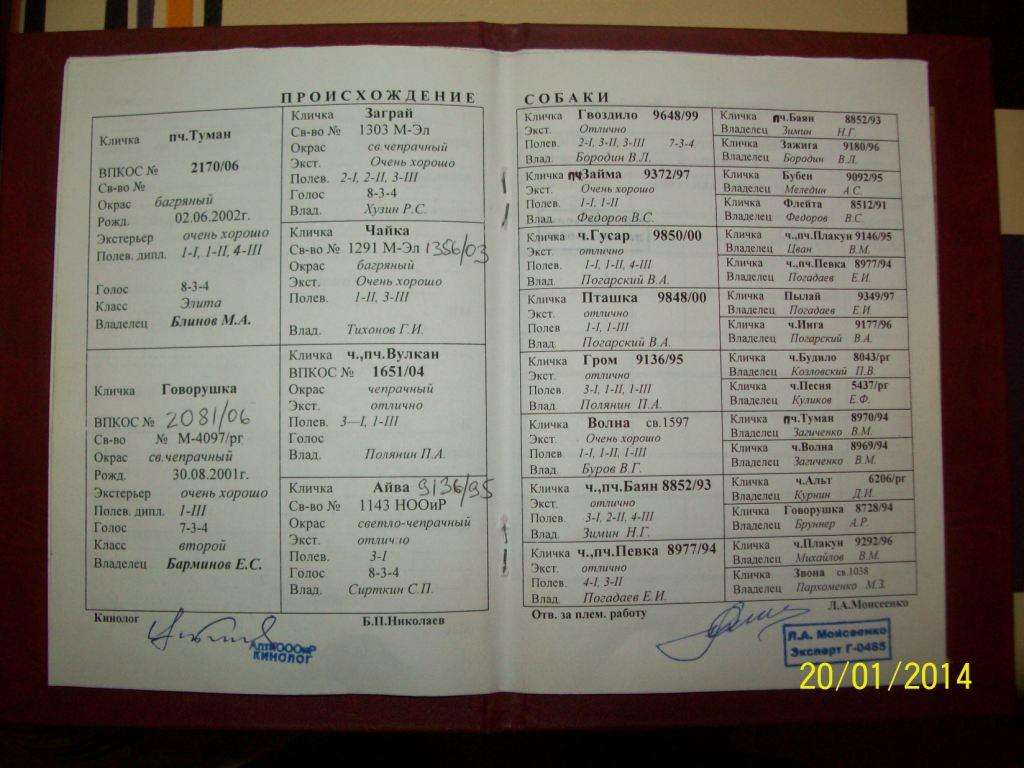 ПРОИСХОЖДЕНИЕ СОБАКИ
Кличка пч.Туман
ВПКОС № 2170/06
Св-во №
Окрас багряный
Рожд. 02.06.2002г.
Экстерьер очень хорошо
Полев. дипл. 1-I, 1-II, 4-III
Голос 8-3-4
Класс Элита
Владелец Блинов М.А.
Кличка Говорушка
ВПКОС № 2081/06
Св-во № М-4097/рг
Окрас св.чепрачный
Рожд. 30.08.2001г.
Экстерьер очень хорошо
Полев. дипл. 1-III
Голос 7-3-4
Класс второй
Владелец Барминов Е.С.
Кличка Заграй
Св-во № 1303 М-Эл
Окрас св.чепрачный
Экст. Очень хорошо
Полев. 2-I, 2-II, 3-III
Голос 8-3-4
Влад. Хузин Р.С.
Кличка Чайка
Св-во № 1291 М-Эл 1356/03
Окрас багряный
Экст. Очень хорошо
Полев. 1-II, 3-III
Влад. Тихонов Г.И.
Кличка ч.,пч.Вулкан
ВПКОС № 1651/04
Окрас чепрачный
Экст. отлично
Полев. 3—I, 1-III
Голос
Влад. Полянин П.А.
Кличка Айва 9136/95
Св-во № 1143 НООиР
Окрас светло-чепрачный
Экст. отлично
Полев. 3-I
Голос 8-3-4
Влад. Сирткин С.П.
Кличка Гвоздило 9648/99
Экст. Отлично
Полев. 2-I, 3-II, 3-III 7-3-4
Влад. Бородин В.Л.
Кличка пчЗайма 9372/97
Экст. Очень хорошо
Полев. 1-I, 1-II
Влад. Федоров В.С.
Кличка ч.Гусар 9850/00
Экст. отлично
Полев. 1-I, 1-II, 4-III
Влад. Погарский В.А.
Кличка Пташка 9848/00
Экст. отлично
Полев 1-I, 1-III
Влад. Погарский В.А.
Кличка Гром 9136/95
Экст. отлично
Полев. 3-I, 1-II, 1-III
Влад. Полянин П.А.
Кличка Волна св.1597
Экст. Очень хорошо
Полев. 1-I, 1-II, 1-III
Влад. Буров В.Г.
Кличка ч.,пч.Баян 8852/93
Экст. отлично
Полев. 3-I, 2-II, 4-III
Влад. Зимин Н.Г.
Кличка ч.,пч.Певка 8977/94
Экст. отлично
Полев. 4-I, 3-II
Влад. Погадаев Е.И.
Кличка пч.Баян 8852/93
Владелец Зимин Н.Г.
Кличка Зажига 9180/96
Владелец Бородин В.Л.
Кличка Бубен 9092/95
Владелец Меледин А.С.
Кличка Флейта 8512/91
Владелец Федоров В.С.
Кличка ч.,пч.Плакун 9146/95
Владелец Цван В.М.
Кличка ч.,пч.Певка 8977/94
Владелец Погадаев Е.И.
Кличка Пылай 9349/97
Владелец Погадаев Е.И.
Кличка ч.Инга 9177/96
Владелец Погарский В.А.
Кличка ч.Будило 8043/рг
Владелец Козловский П.В.
Кличка ч.Песня 5437/рг
Владелец Куликов Е.Ф.
Кличка пч.Туман 8970/94
Владелец Загиченко В.М.
Кличка ч.Волна 8969/94
Владелец Загиченко В.М.
Кличка ч.Альт 6206/рг
Владелец Курнин Д.И.
Кличка Говорушка 8728/94
Владелец Бруннер А.Р.
Кличка ч.Плакун 9292/96
Владелец Михайлов В.М.
Кличка Звона св.1038
Владелец Пархоменко М.З.
Кинолог Б.П.Николаев
КИНОЛОГ
Отв. за плем. работу Л.А.Моисеенко
Л.А. Моисеенко
Эксперт Г-0485
20/01/2014